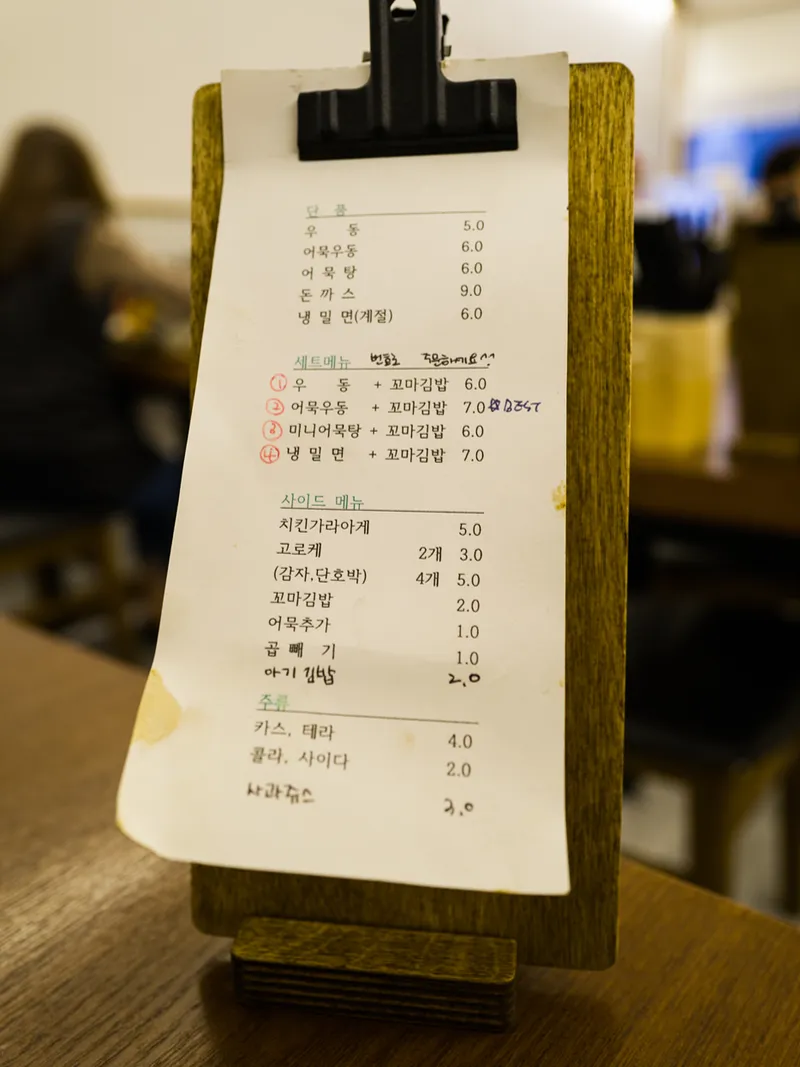 단 품
우 동 5.0
어묵우동 6.0
어 묵 탕 6.0
돈 까 스 9.0
냉 밀 면(계절) 6.0
세트메뉴 번호로 주문하세요^^
① 우 동 + 꼬마김밥 6.0
② 어묵우동 + 꼬마김밥 7.0 BEST
③ 미니어묵탕 + 꼬마김밥 6.0
④ 냉 밀 면 + 꼬마김밥 7.0
사이드 메뉴
치킨가라아게 5.0
고로케 2개 3.0
(감자,단호박) 4개 5.0
꼬마김밥 2.0
어묵추가 1.0
곱 빼 기 1.0
아기 김밥 2.0
주류
카스, 테라 4.0
콜라, 사이다 2.0
사과쥬스 3.0